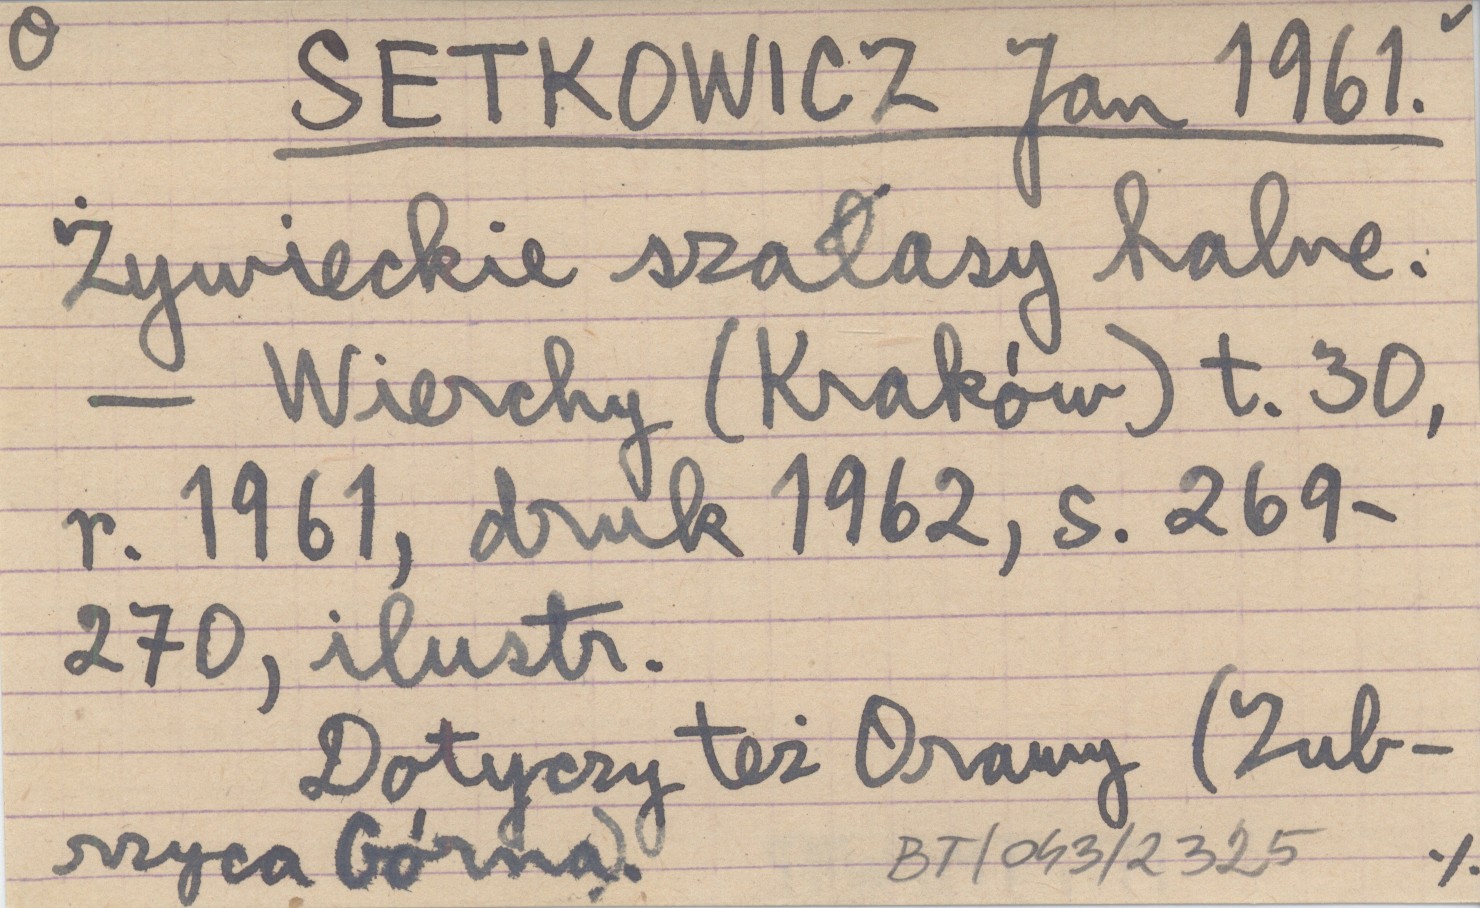 O
SETKOWICZ Jan 1961.
Żywieckie szałasy halne.
— Wierchy (Kraków) t. 30,
r. 1961, druk 1962, s. 269-
270, ilustr.
Dotyczy też Orawy (Zub-
rzyca Górna).
BT/043/2325
./.